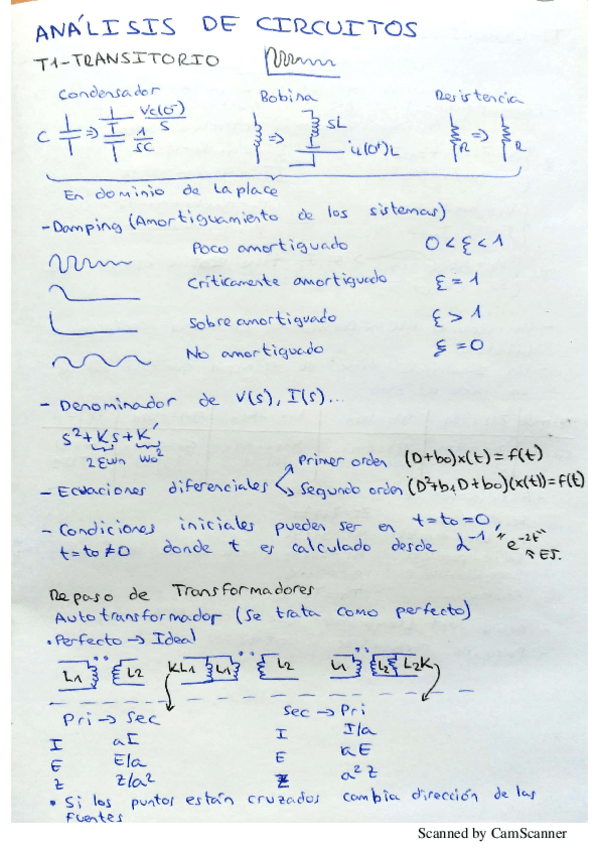 ANÁLISIS DE CIRCUITOS
T1-TRANSITORIO
Condensador Bobina Resistencia
C ⇒ Vc(0-)/S 1/SC ⇒ SL iL(0+)L R ⇒ R
En dominio de Laplace
- Damping (Amortiguamiento de los sistemas)
Poco amortiguado 0 < ξ < 1
Críticamente amortiguado ξ = 1
Sobre amortiguado ξ > 1
No amortiguado ξ = 0
- Denominador de V(s), I(s)...
S²+KS+K'
2ξωn ωo²
Primer orden (D+bo)x(t)=f(t)
- Ecuaciones diferenciales
Segundo orden (D²+b1D+bo)(x(t))=f(t)
- Condiciones iniciales pueden ser en t=to=0,
t=to≠0 donde t es calculado desde L⁻¹ "e^-2t"
↖ EJ.
Repaso de Transformadores
Autotransformador (Se trata como perfecto)
• Perfecto → Ideal
L1 L2 KL1 L1 L2 L1 L2 L2K
Pri → Sec Sec → Pri
I aI I I/a
E E/a E aE
Z Z/a² Z a²Z
• Si los puntos están cruzados cambia dirección de las
fuentes
Scanned by CamScanner